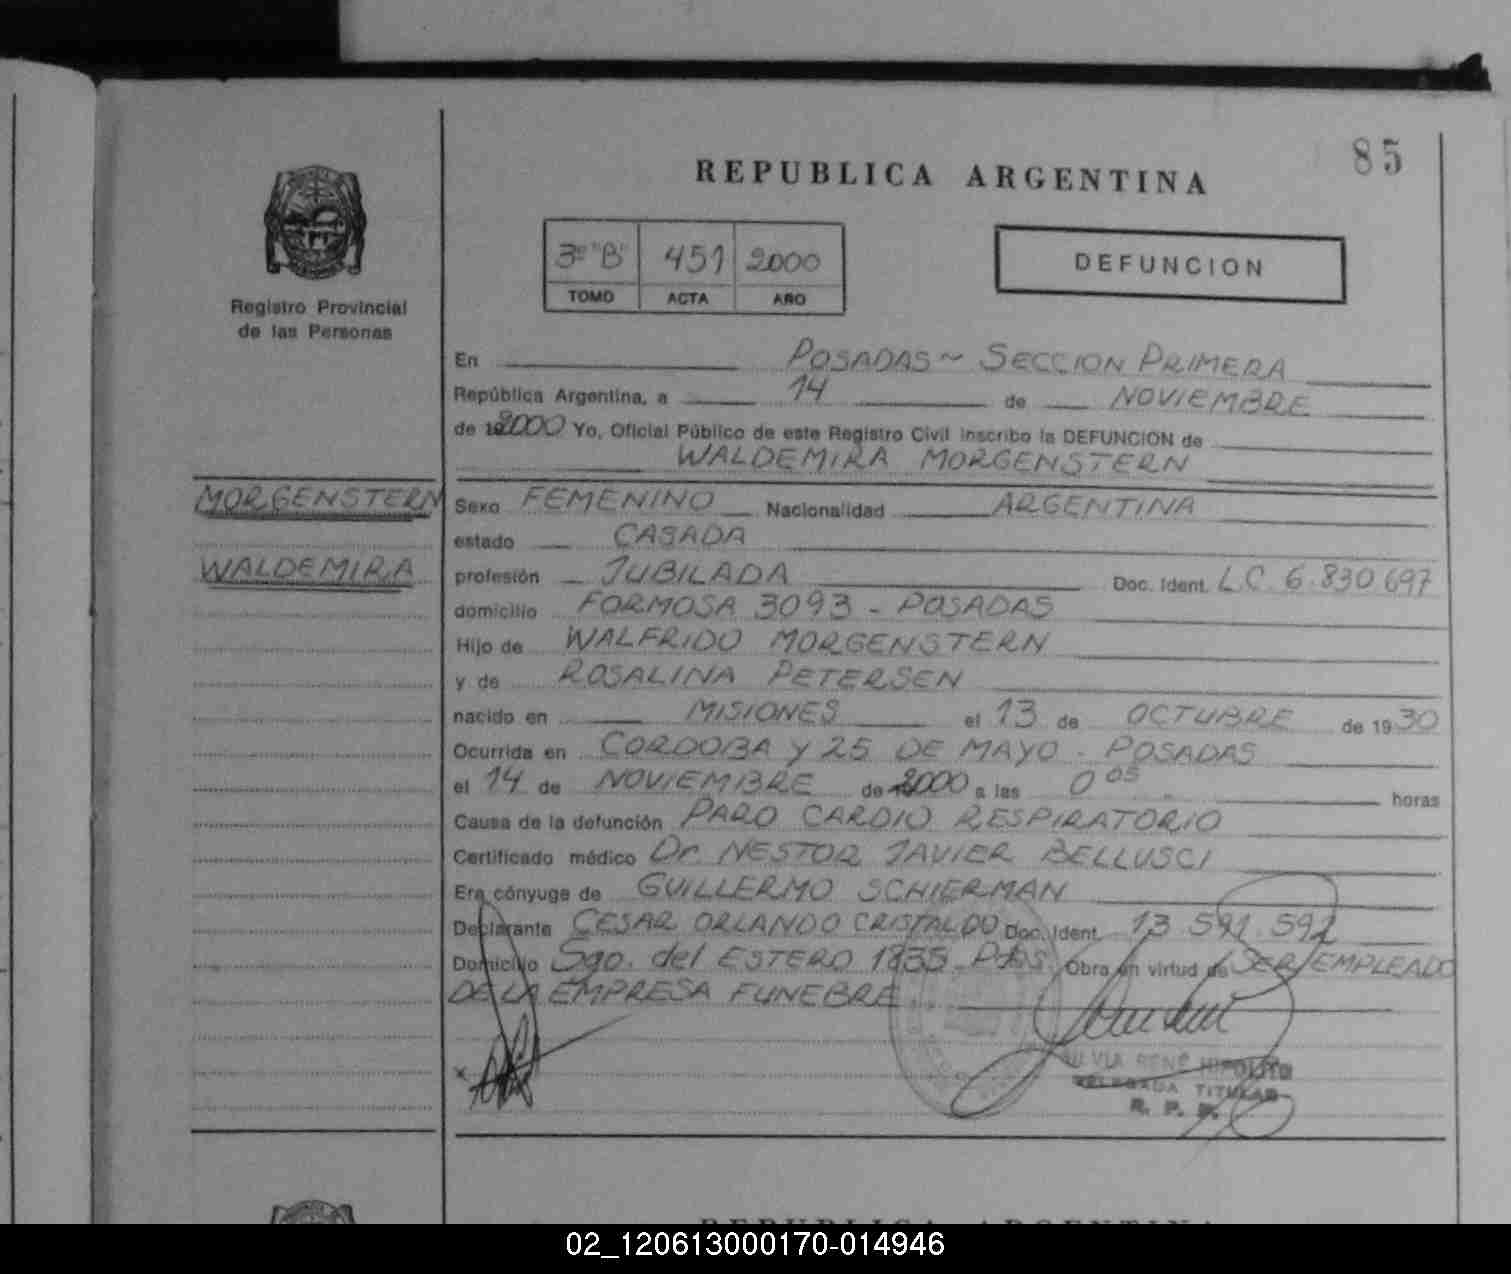 85
REPUBLICA ARGENTINA
3º "B" 451 2000
TOMO ACTA AÑO
DEFUNCION
Registro Provincial
de las Personas
En POSADAS ~ SECCION PRIMERA
República Argentina, a 14 de NOVIEMBRE
de 2000 Yo, Oficial Público de este Registro Civil inscribo la DEFUNCION de
WALDEMIRA MORGENSTERN
MORGENSTERN
WALDEMIRA
Sexo FEMENINO Nacionalidad ARGENTINA
estado CASADA
profesión JUBILADA Doc. Ident. L.C. 6.830.697
domicilio FORMOSA 3093 - POSADAS
Hijo de WALFRIDO MORGENSTERN
y de ROSALINA PETERSEN
nacido en MISIONES el 13 de OCTUBRE de 1930
Ocurrida en CORDOBA y 25 DE MAYO - POSADAS
el 14 de NOVIEMBRE de 2000 a las 0 05 horas
Causa de la defunción PARO CARDIO RESPIRATORIO
Certificado médico Dr. NESTOR JAVIER BELLUSCI
Era cónyuge de GUILLERMO SCHIERMAN
Declarante CESAR ORLANDO CRISTALDO Doc. Ident. 13.591.592
Domicilio Sgo. del ESTERO 1835 Pdas. Obra en virtud de SER EMPLEADO
DE LA EMPRESA FUNEBRE
x
SILVIA RENÉ HIPOLITO
DELEGADA TITULAR
R. P. P.
REPUBLICA ARGENTINA
02_120613000170-014946